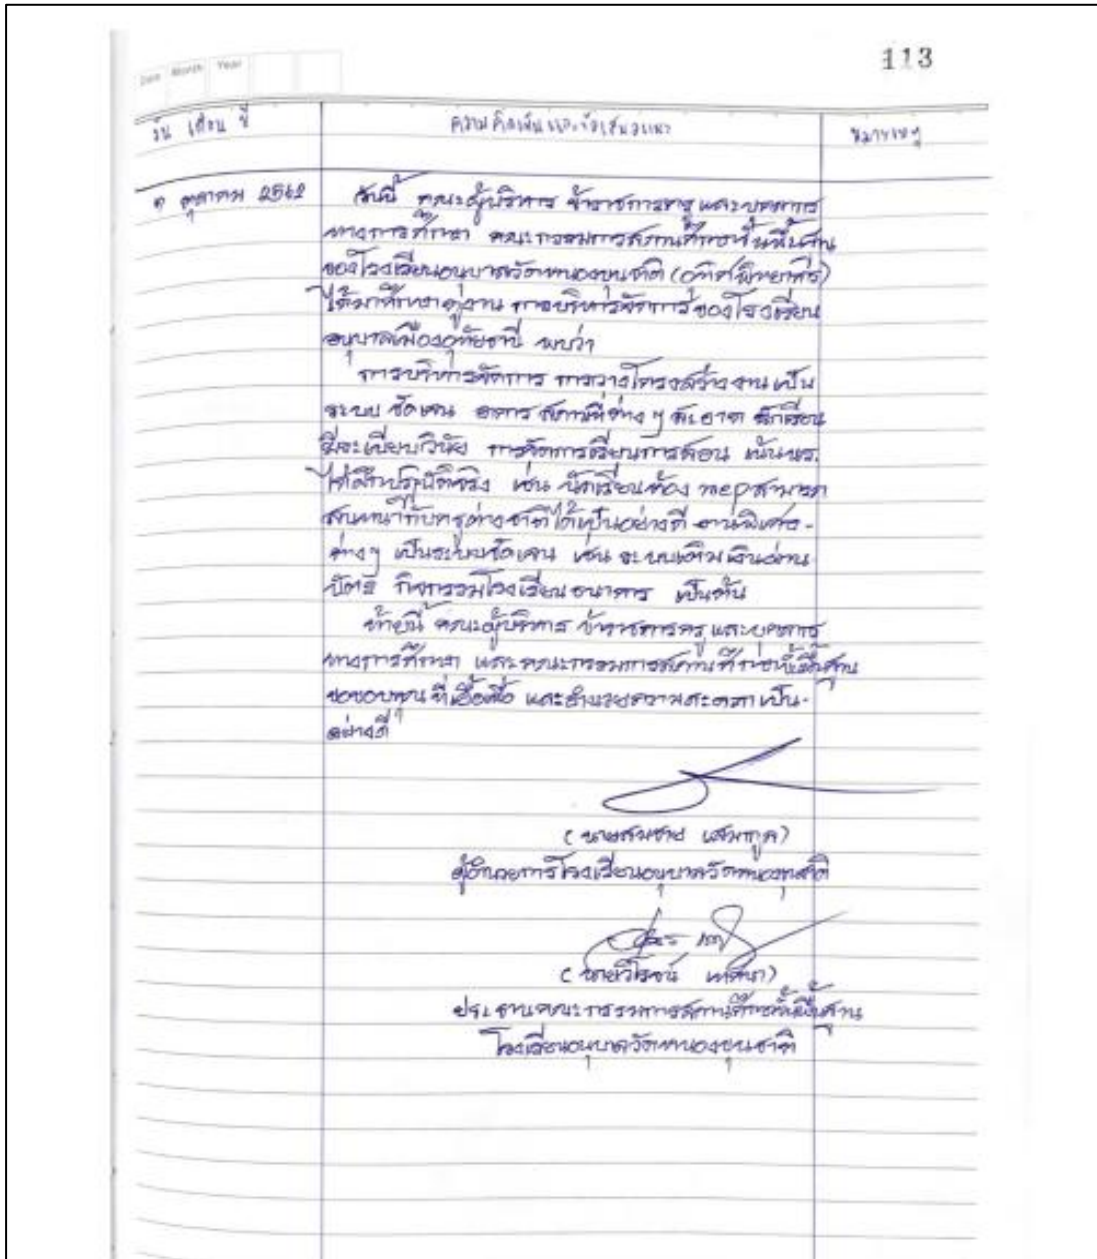 113
Date Month Year
วัน เดือน ปี
ความคิดเห็นและข้อเสนอแนะ
หมายเหตุ
๑ ตุลาคม 2562
วันนี้ คณะผู้บริหาร ข้าราชการครู และบุคลากร
ทางการศึกษา คณะกรรมการสถานศึกษาขั้นพื้นฐาน
ของโรงเรียนอนุบาลวัดหนองขุนชาติ (อุทิศพิทยาคาร)
ได้มาศึกษาดูงาน การบริหารจัดการของโรงเรียน
อนุบาลเมืองอุทัยธานี พบว่า
การบริหารจัดการ การวางโครงสร้างงานเป็น
ระบบ ชัดเจน อาคาร สถานที่ต่าง ๆ สะอาด นักเรียน
มีระเบียบวินัย การจัดการเรียนการสอน เน้นนร.
ได้ฝึกปฏิบัติจริง เช่น นักเรียนห้อง mep สามารถ
สนทนากับครูต่างชาติได้เป็นอย่างดี งานพิเศษ-
ต่างๆ เป็นระบบชัดเจน เช่น ระบบเติมเงินผ่าน
บัตร กิจกรรมโรงเรียนธนาคาร เป็นต้น
ท้ายนี้ คณะผู้บริหาร ข้าราชการครู และบุคลากร
ทางการศึกษา และคณะกรรมการสถานศึกษาขั้นพื้นฐาน
ขอขอบคุณ ที่เอื้อเฟื้อ และอำนวยความสะดวกเป็น-
อย่างดี
(นายสมชาย เสมากูล)
ผู้อำนวยการโรงเรียนอนุบาลวัดหนองขุนชาติ
(นายวิโรจน์)
ประธานคณะกรรมการสถานศึกษาขั้นพื้นฐาน
โรงเรียนอนุบาลวัดหนองขุนชาติ